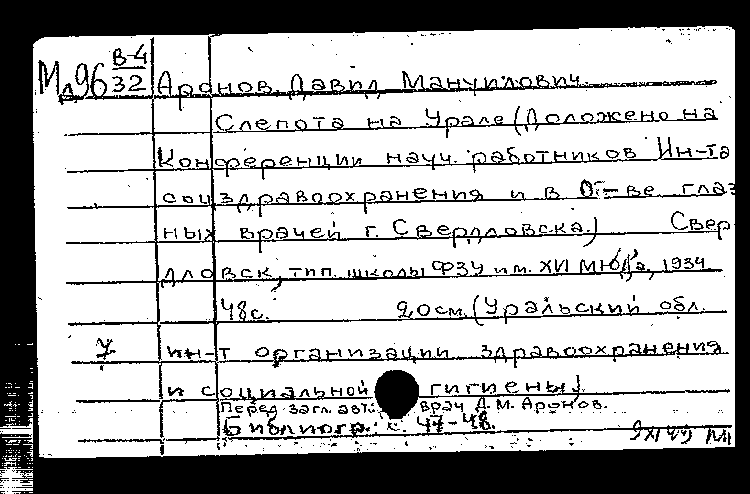 Мд96 В-4/32
Аронов, Давид Мануилович.
Слепота на Урале (Доложено на
Конференции науч. работников Ин-та
соц здравоохранения и в О-ве глаз
ных врачей г. Свердловска.) Свер
дловск, тип. школы ФЗУ им. XVI МЮДа, 1934
48 с. 20 см. (Уральский обл.
У
ин-т организации здравоохранения
и социальной гигиены)
Перед загл. авт.: врач Д. М. Аронов.
Библиогр.: с. 47-48.